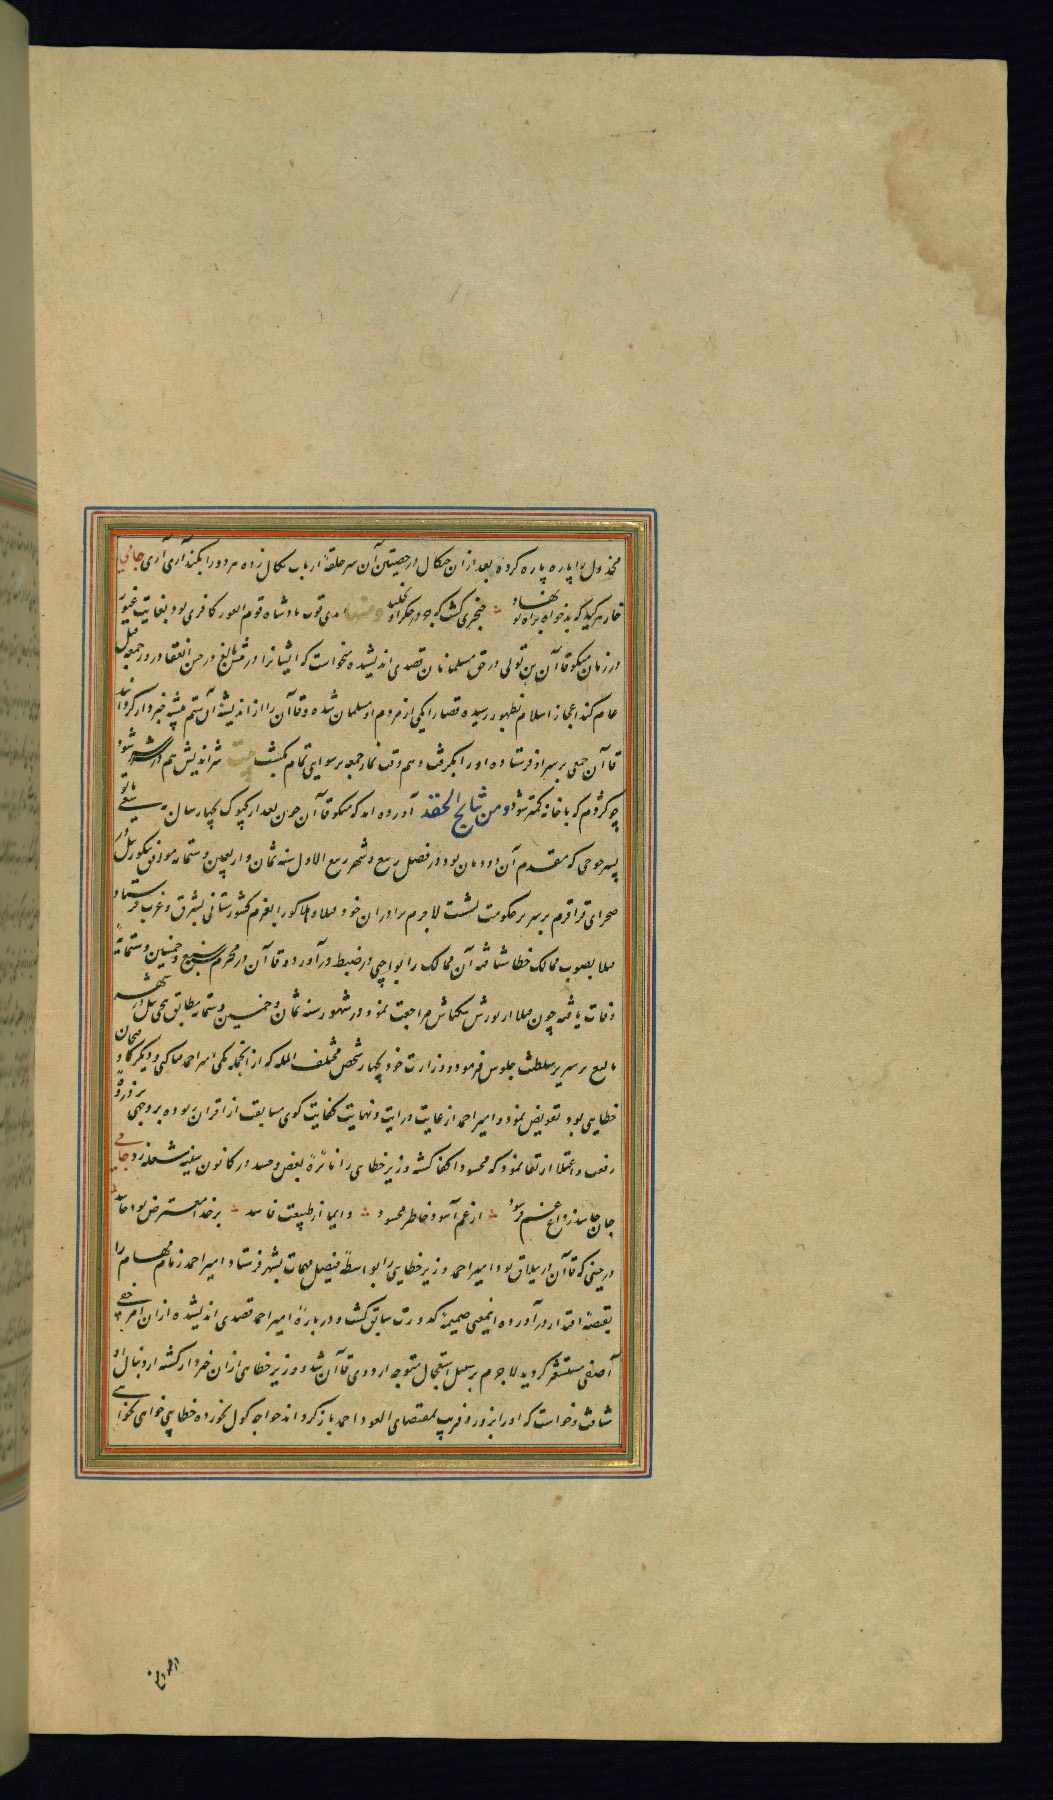 مخذول را پاره پاره کرده بعد از آن حکال در حصین آن سر حلقهٔ ارباب نکال زده هر دو را بکند آری آری جامی
خار هرکید که بدخواه براه تو نهاد خنجری کشت که جز در جکر او نخلید ومنها ایدی قوب پادشاه قوم ایغور کافری بود بغایت غیور
در زمان منکوقاآن بن تولی در حق مسلمانان قصدی اندیشیده میخواست که ایشانرا در بیش بالیغ در حین انعقاد روز جمعه قتل
عام کند اعجاز اسلام بظهور رسیده قضا را یکی از مردم او مسلمان شده و قاآن را از اندیشهٔ آن ستم پیشه خبردار کردانید
قاآن جمعی بر سر او فرستاده او را بکرفت و هم وقت نماز جمعه برسوایی تمام بکشت بیت شر اندیش هم در سر شر شود
چو کژدم که با خانه کمتر شود ومن نتایج الحقد آورده اند که منکوقاآن چون بعد از کیوک بچهار سال
پسر جوجی که مقدم آن دودمان بود در فصل ربیع و شهر ربیع الاول سنه ثمان و اربعین و ستمایه موافق تنکوز ییل در
صحرای قراقرم بر سریر حکومت نشست لاجرم برادران خود قبلا و هلاکو را بعزم کشورستانی بشرق و غرب فرستاد
قبلا بصوب ممالک خطا شتافته آن ممالک را بواجبی در ضبط در آورد و قاآن در محرم سنه سبع و خمسین و ستمایة
وفات یافته چون قبلا از یورش ننکیاش مراجعت نمود در شهور سنه ثمان و خمسین و ستمایه مطابق پیچی ییل در شهر
بالیغ بر سریر سلطنت جلوس فرمود و وزارت خود بچهار شخص مختلف المله که از آنجمله یکی امیر احمد فناکتی و دیکر کاو فنجان
خطایی بود تفویض نمود و امیر احمد از غایت درایت و نهایت کفایت کوی مسابقت از اقران ربوده بر وجهی بر ذروهٔ
رفعت و اعتلا ارتقا نمود که محسود اکفا کشته وزیر خطایی را نایرهٔ بغض و حسد در کانون سینه شعله زد جامی
جان حاسد ز داغ غم فرسود از غم آسوده خاطر محسود دایما از طبیعت فاسد بر خدا معترض بود حاسد
در حینی که قاآن در ییلاق بود امیر احمد وزیر خطایی را بواسطهٔ فیصل مهمات بشهر فرستاد امیر احمد زمام مهام را
بقبضهٔ اقتدار در آورده اینمعنی ضمیمهٔ کدورت سابق کشت و در بارهٔ امیر احمد قصدی اندیشیده از ان امر خفی
آصفی مستشعر کردید لاجرم بر سبیل استعجال متوجه اردوی قاآن شد و وزیر خطایی از ان خبردار کشته از دنبال او
شتافت و خواست که او را بزور و فریب بمقتضای العود احمد باز کرداند خواجه کول نخورده خطایی خواهی نخواهی